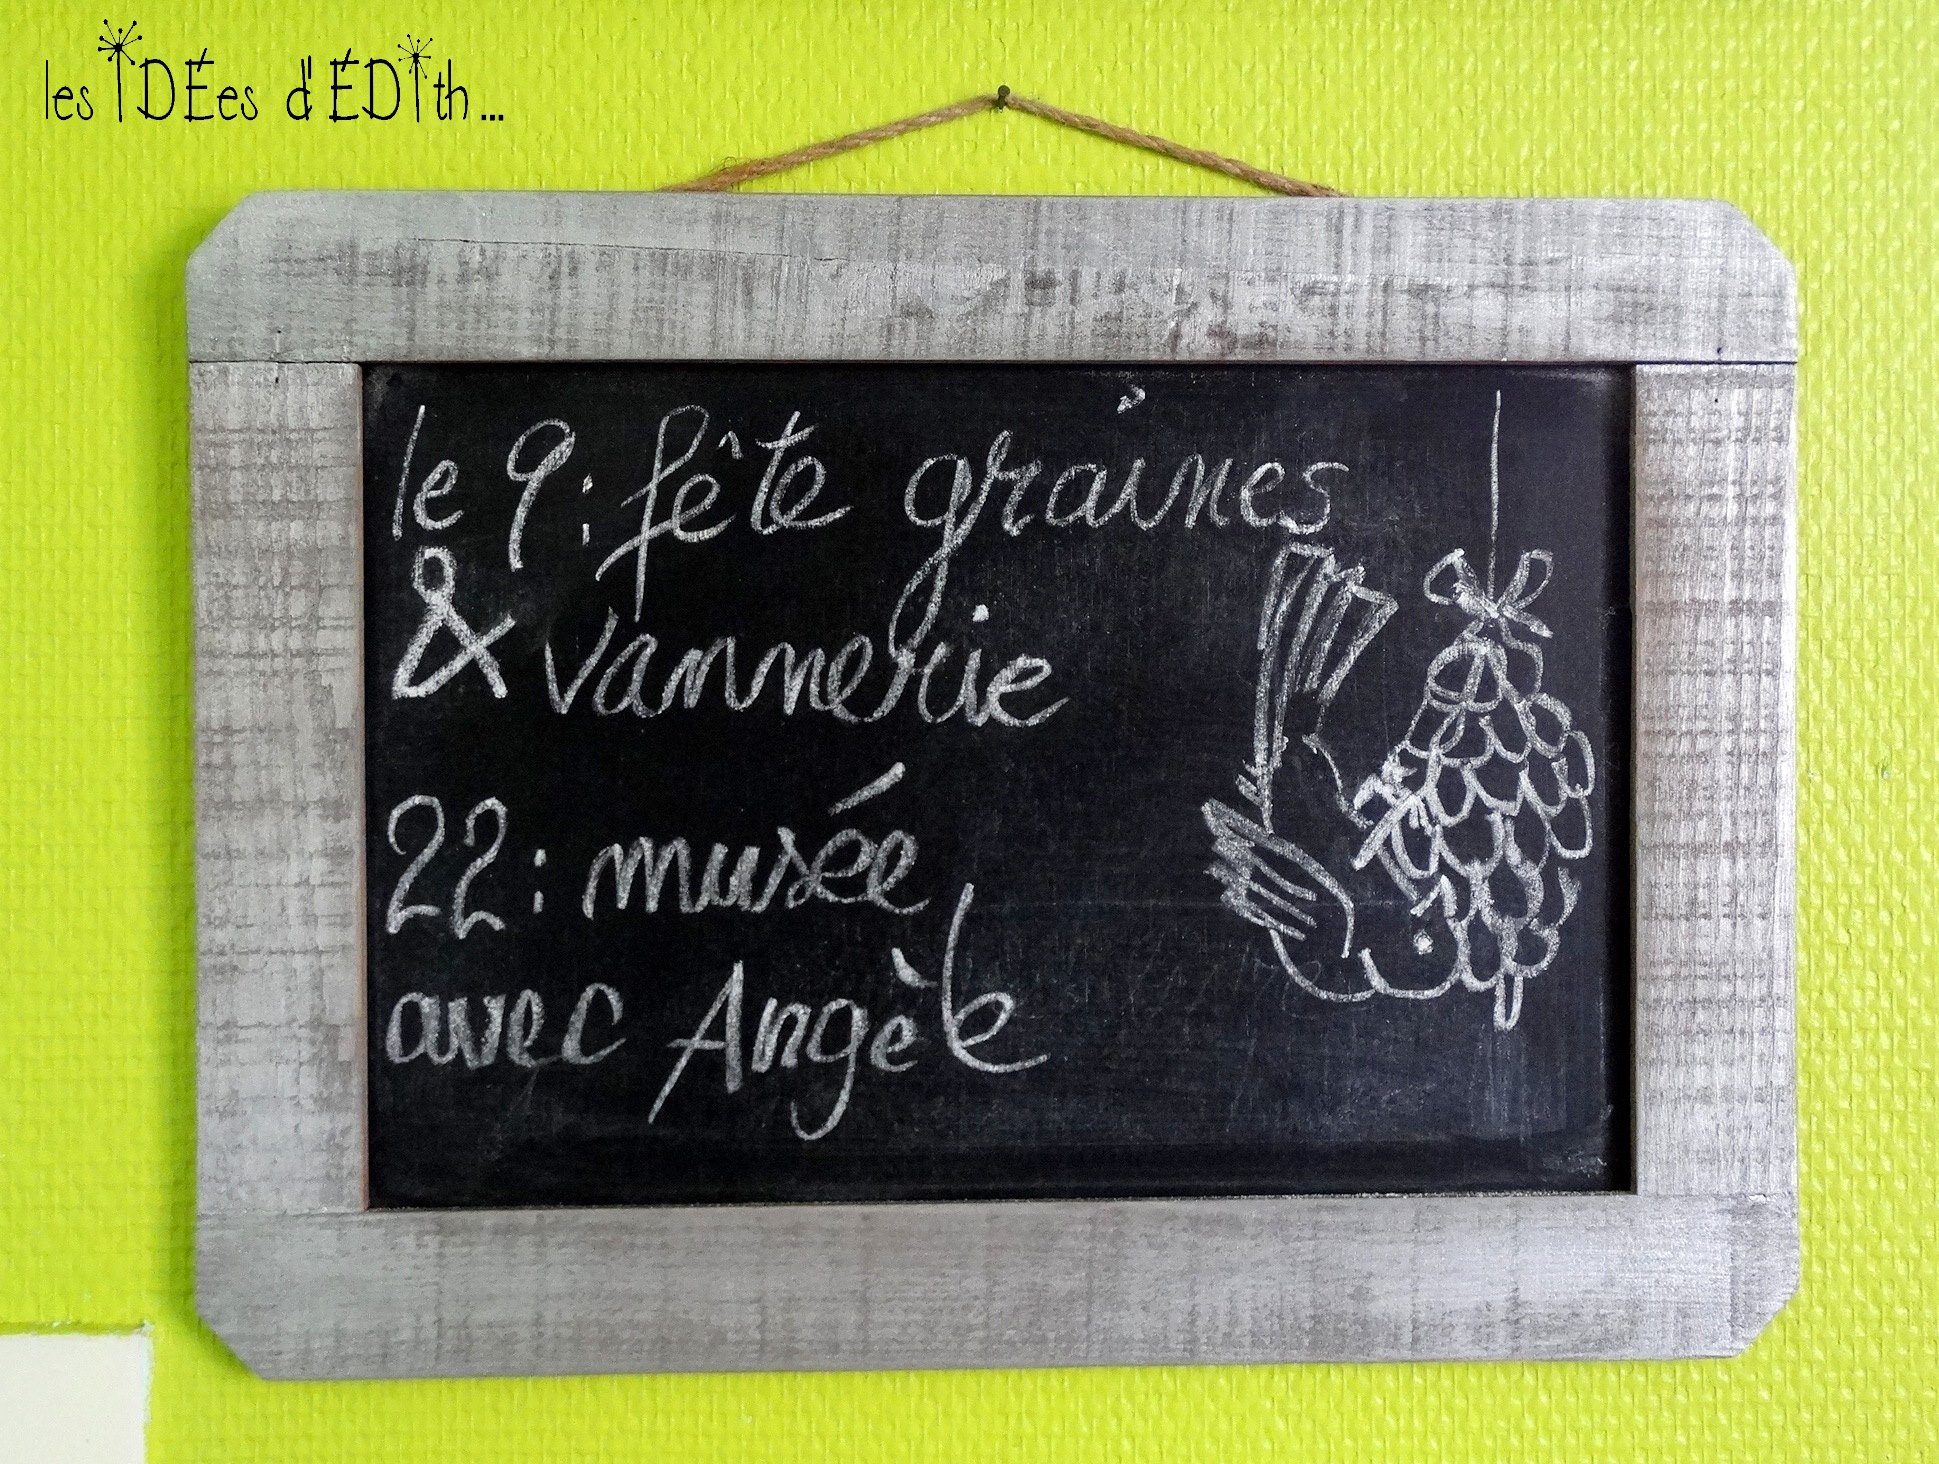 les iDÉes d'ÉDith...
le 9 : fête graines
& vannerie
22 : musée
avec Angèle